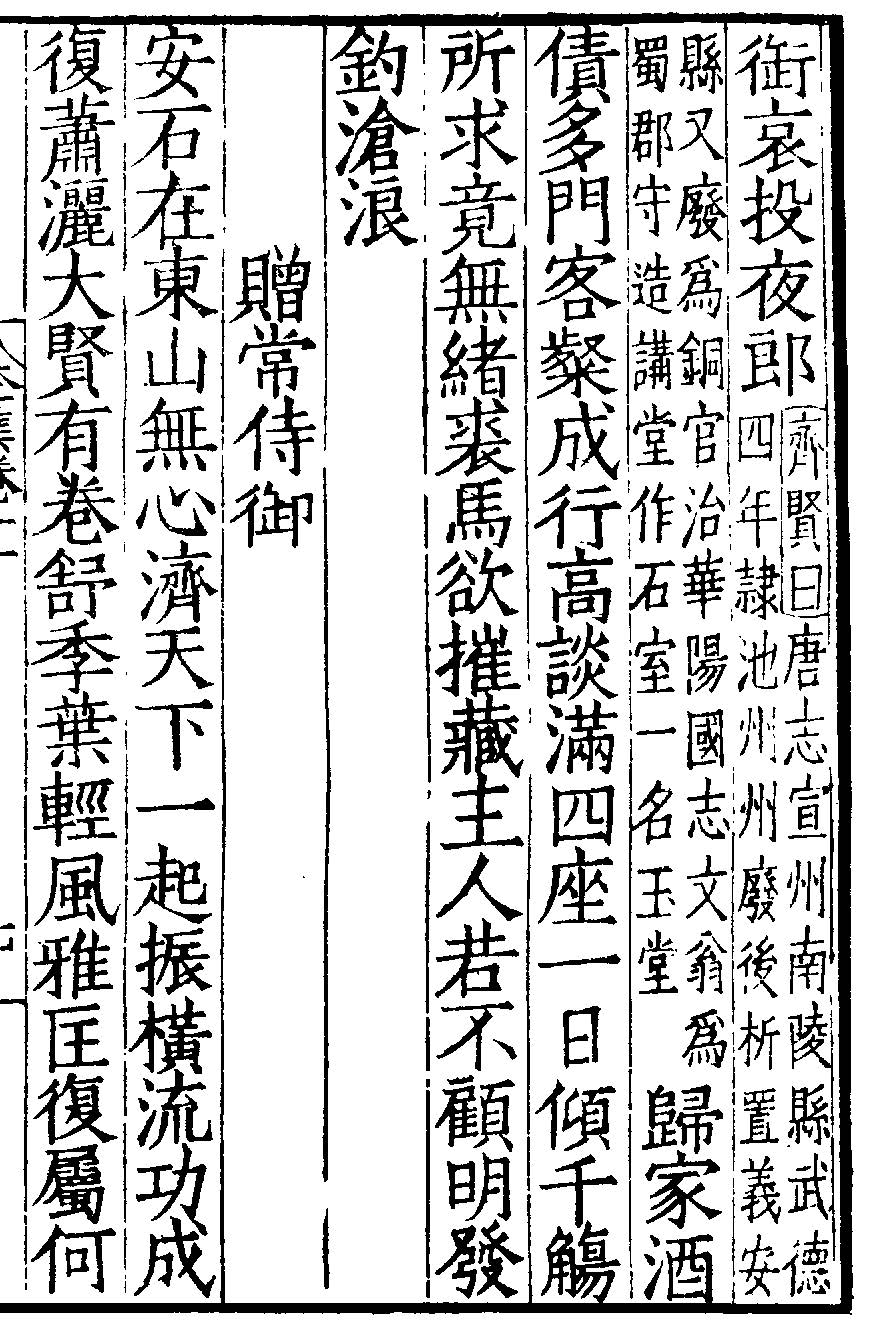 銜哀投夜郎齊賢曰唐志宣州南陵縣武德
四年隷池州州廢後析置義安
縣又廢爲銅官治華陽國志文翁爲
蜀郡守造講堂作石室一名玉堂
歸家酒
債多門客粲成行高談滿四座一日傾千觴
所求竟無緒裘馬欲摧藏主人若不顧明發
釣滄浪
贈常侍御
安石在東山無心濟天下一起振橫流功成
復蕭灑大賢有卷舒季葉輕風雅匡復屬何